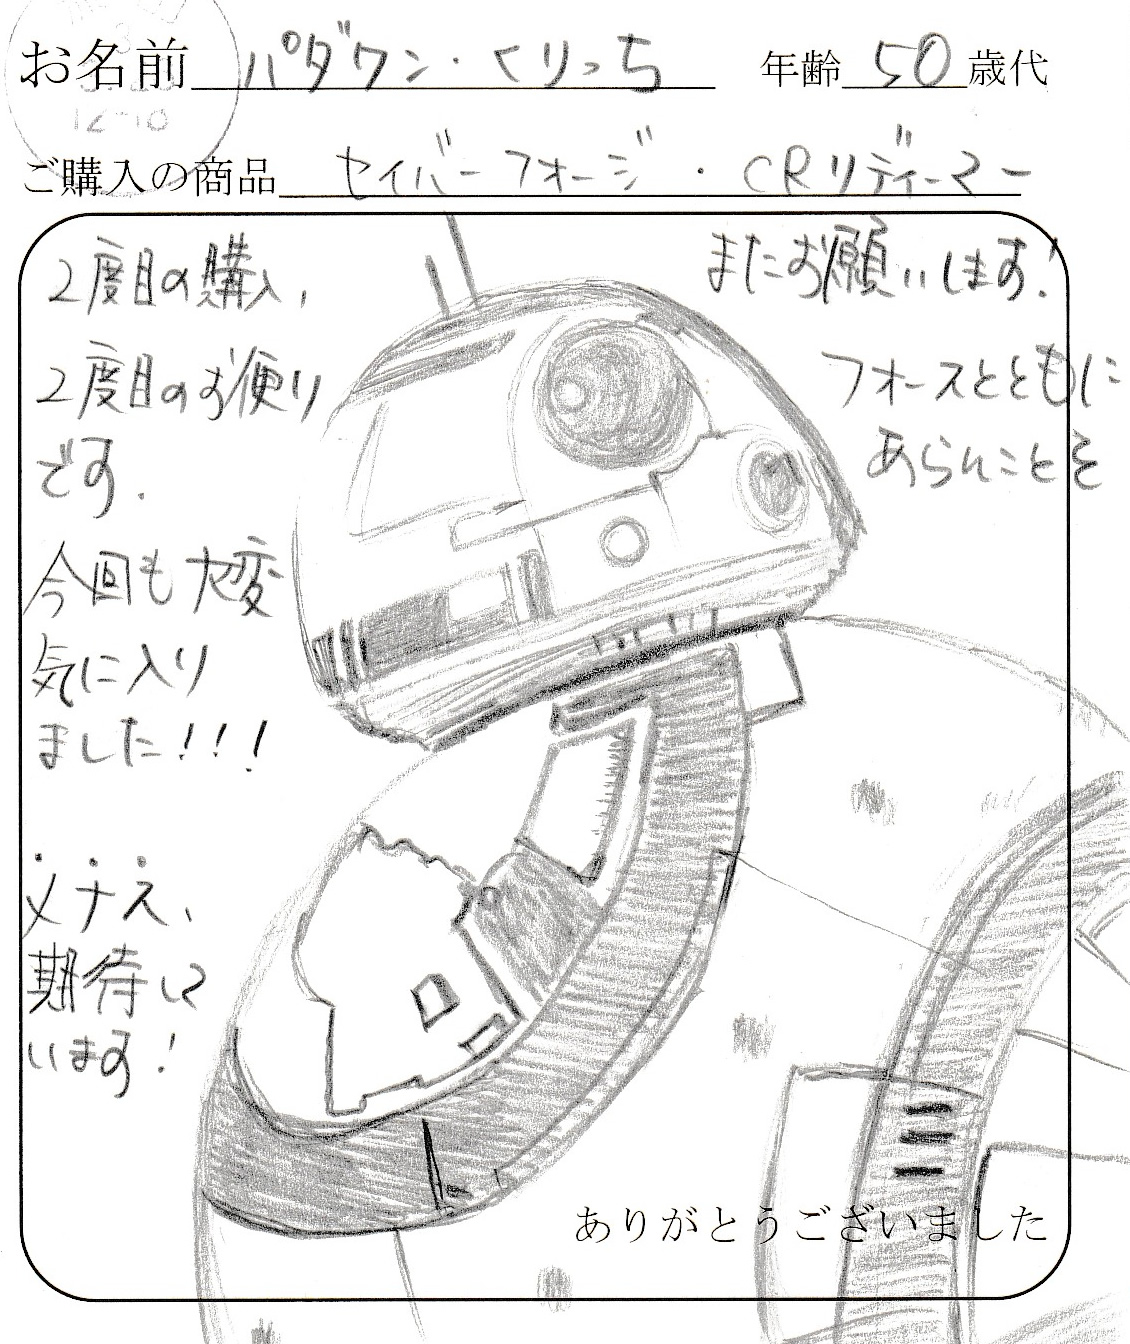 お名前 パダワン・くりっち 年齢 50 歳代
ご購入の商品 セイバーフォージ・CRリディーマー
2度目の購入、
2度目のお便り
です.
今回も大変
気に入り
ました!!!
メナス、
期待して
います!
またお願いします!
フォースとともに
あらんことを
ありがとうございました
12-10